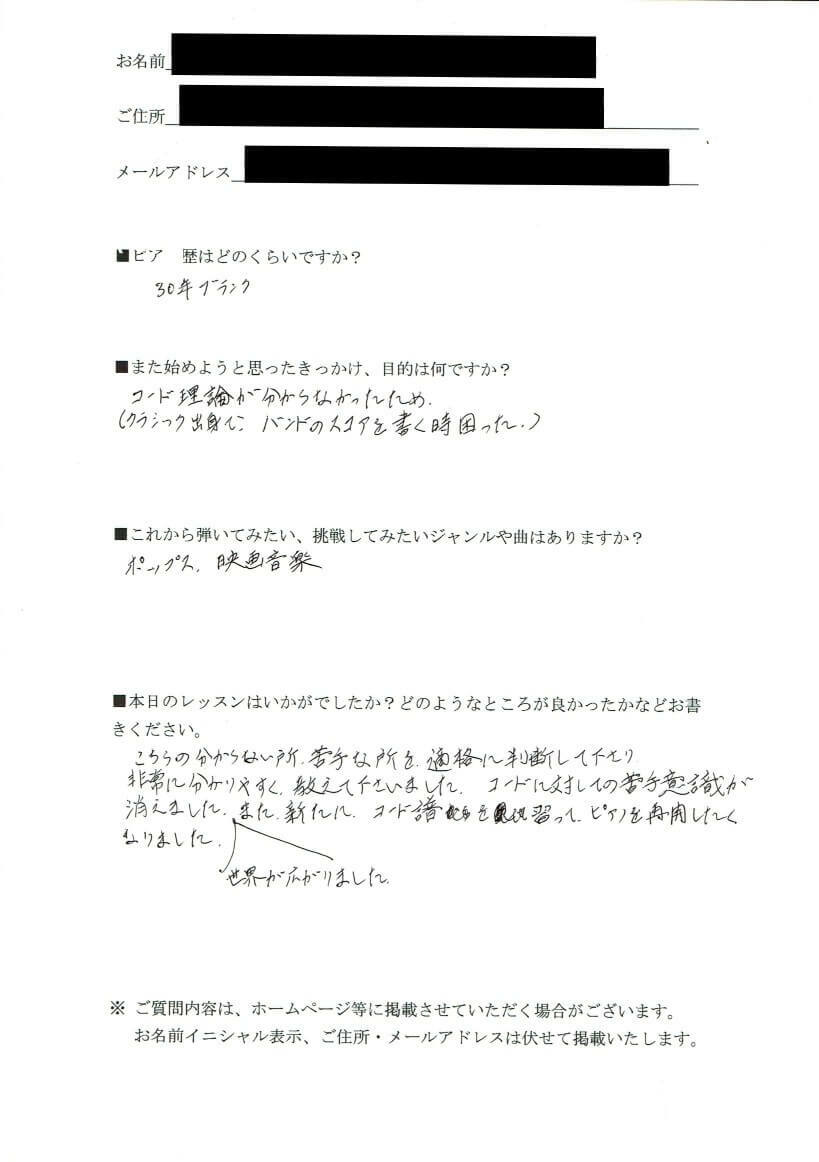 お名前
ご住所
メールアドレス
■ピア 歴はどのくらいですか？
30年ブランク
■また始めようと思ったきっかけ、目的は何ですか？
コード理論が分からなかったため.
(クラシック出身で、バンドのスコアを書く時困った.)
■これから弾いてみたい、挑戦してみたいジャンルや曲はありますか？
ポップス、映画音楽
■本日のレッスンはいかがでしたか？どのようなところが良かったかなどお書
きください。
こちらの分からない所、苦手な所を、適格に判断して下さり
非常に分かりやすく、教えて下さいました. コードに対しての苦手意識が
消えました. また、新たに、コード譜を習って、ピアノを再開したく
なりました.
世界が広がりました.
※ ご質問内容は、ホームページ等に掲載させていただく場合がございます。
お名前イニシャル表示、ご住所・メールアドレスは伏せて掲載いたします。